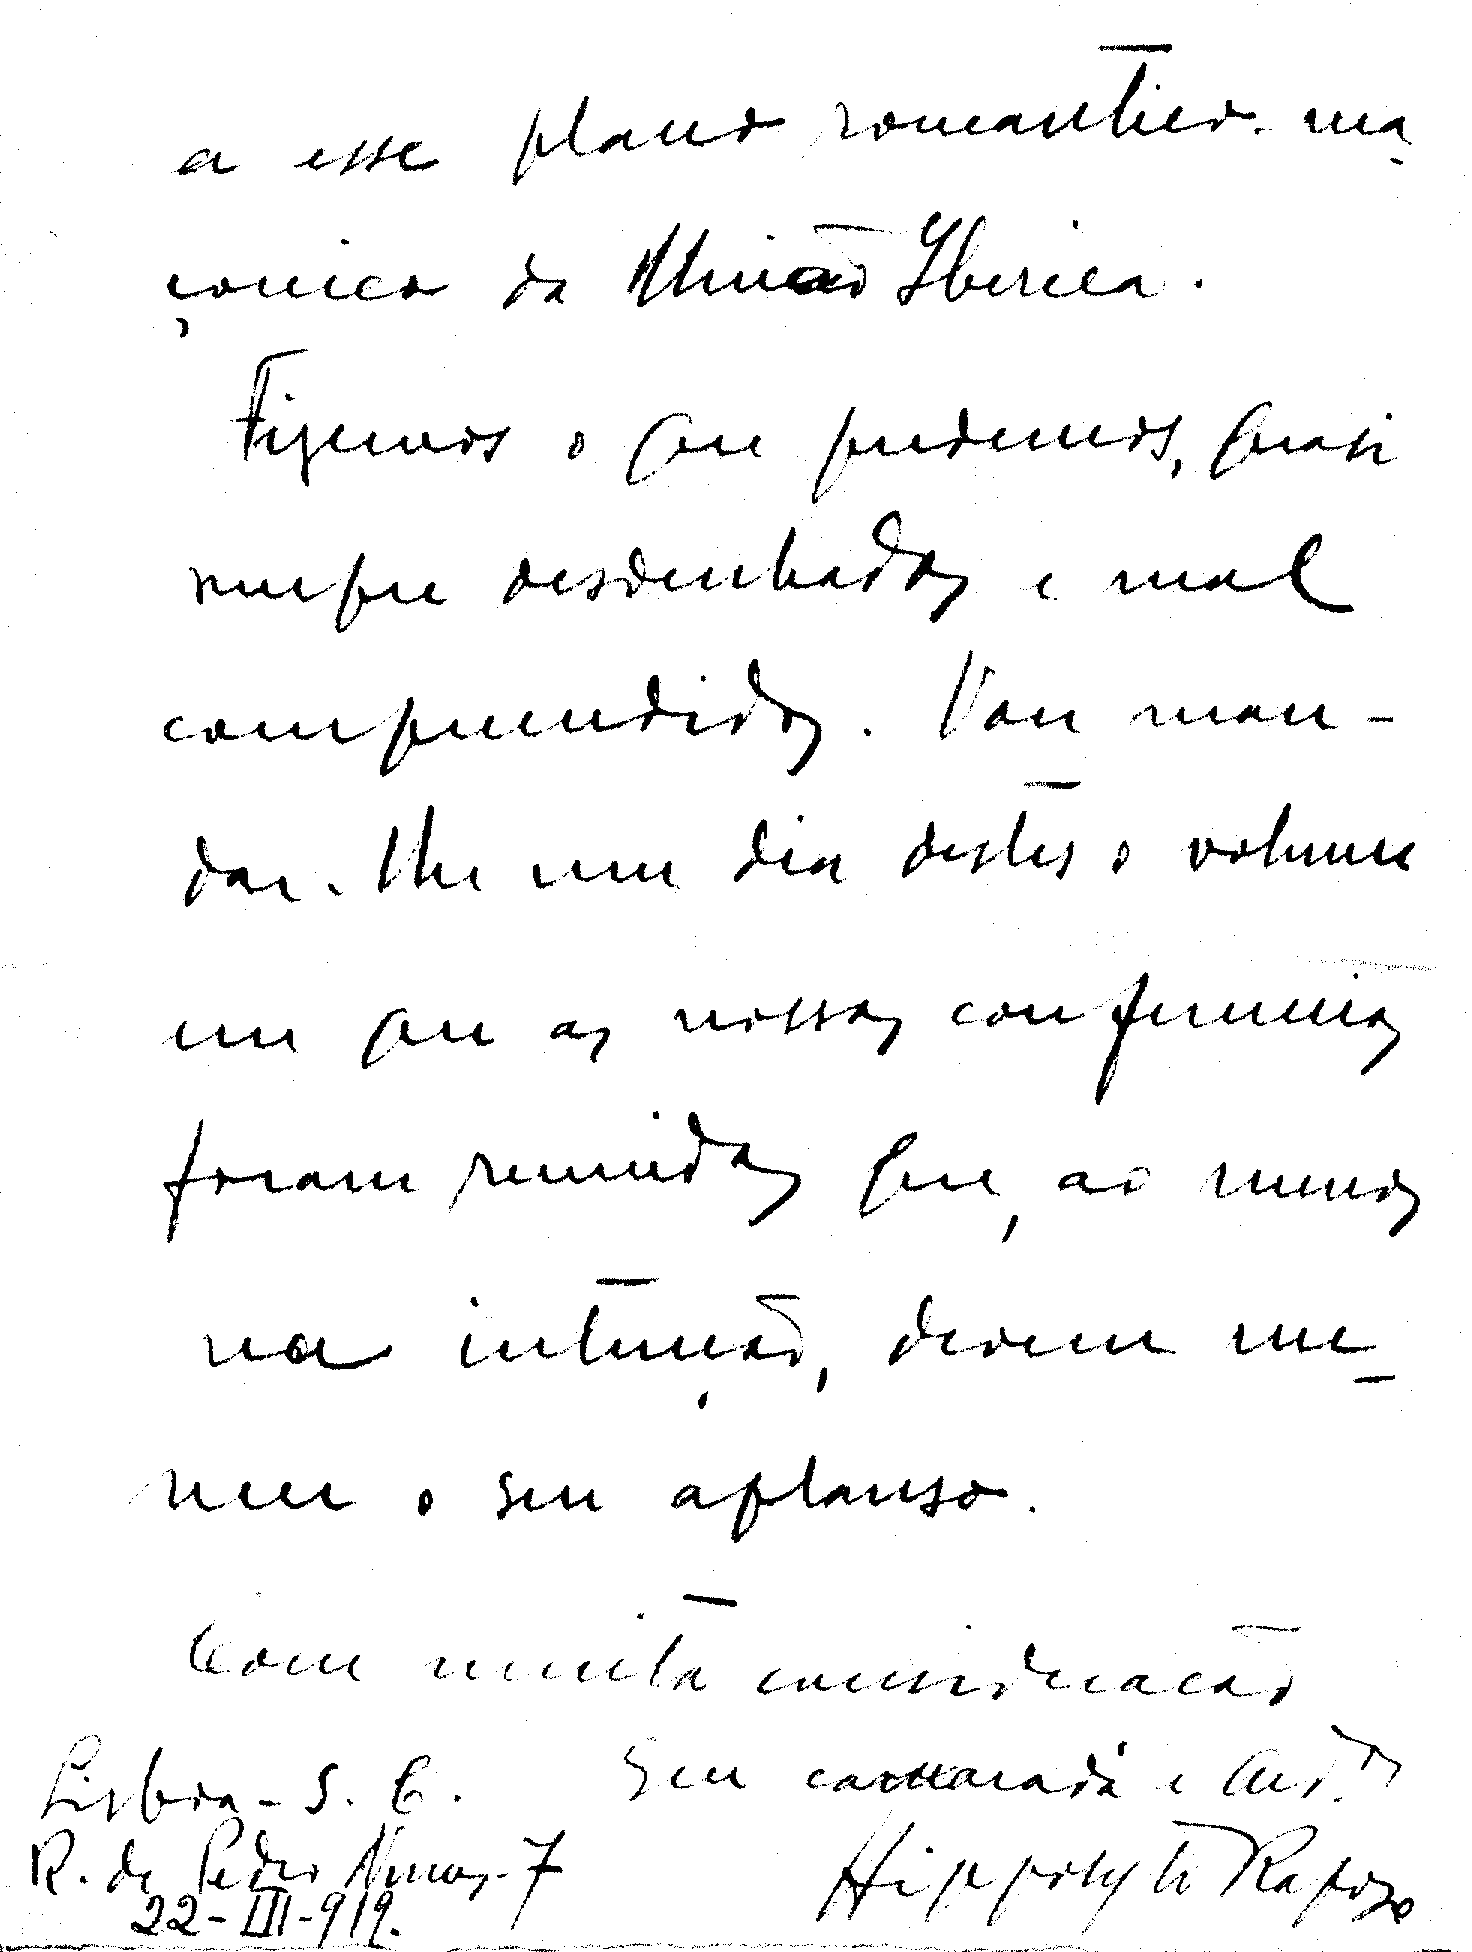 a esse plano romantico-ma-
çonico da União Iberica.
Fizemos o que pudemos, quasi
sempre desdenhados e mal
comprendidos. Vou man-
dar-lhe um dia destes o volume
em que as nossas conferencias
foram reunidas que, ao menos
na intenção, devem me-
recer o seu aplauso.
Com muita consideração
Seu camarada e Ad.or
Lisboa - S. C.
R. de Pedro Nunes - 7
22-III-919.
Hippolyto Raposo